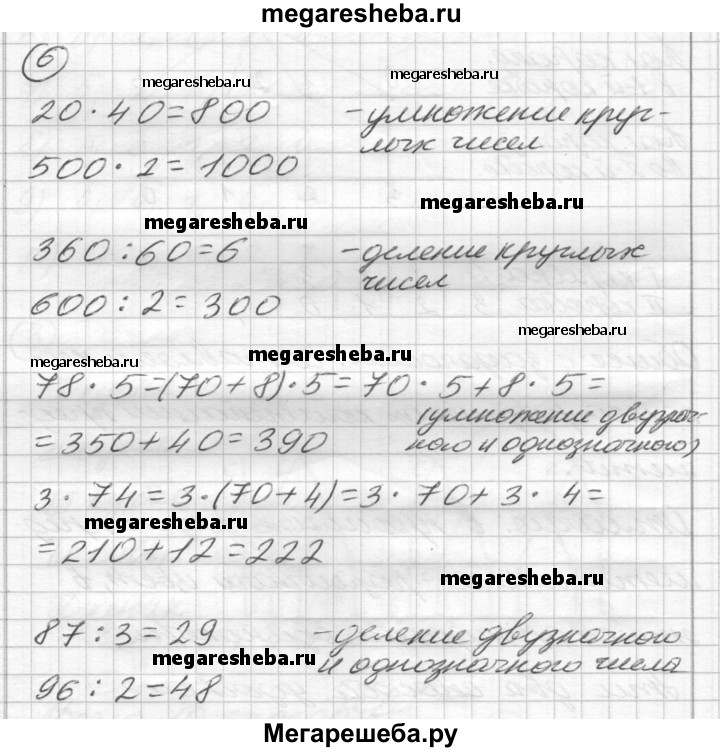 megaresheba.ru
6
megaresheba.ru megaresheba.ru
20 · 40 = 800 - умножение круг-
лых чисел
500 · 2 = 1000
megaresheba.ru megaresheba.ru
360 : 60 = 6 - деление круглых
чисел
600 : 2 = 300
megaresheba.ru
megaresheba.ru megaresheba.ru
78 · 5 = (70 + 8) · 5 = 70 · 5 + 8 · 5 =
= 350 + 40 = 390 (умножение двузнач-
ного и однозначного)
3 · 74 = 3 · (70 + 4) = 3 · 70 + 3 · 4 =
megaresheba.ru
= 210 + 12 = 222
megaresheba.ru
87 : 3 = 29 - деление двузначного
megaresheba.ru и однозначного числа
96 : 2 = 48
Мегарешеба.ру